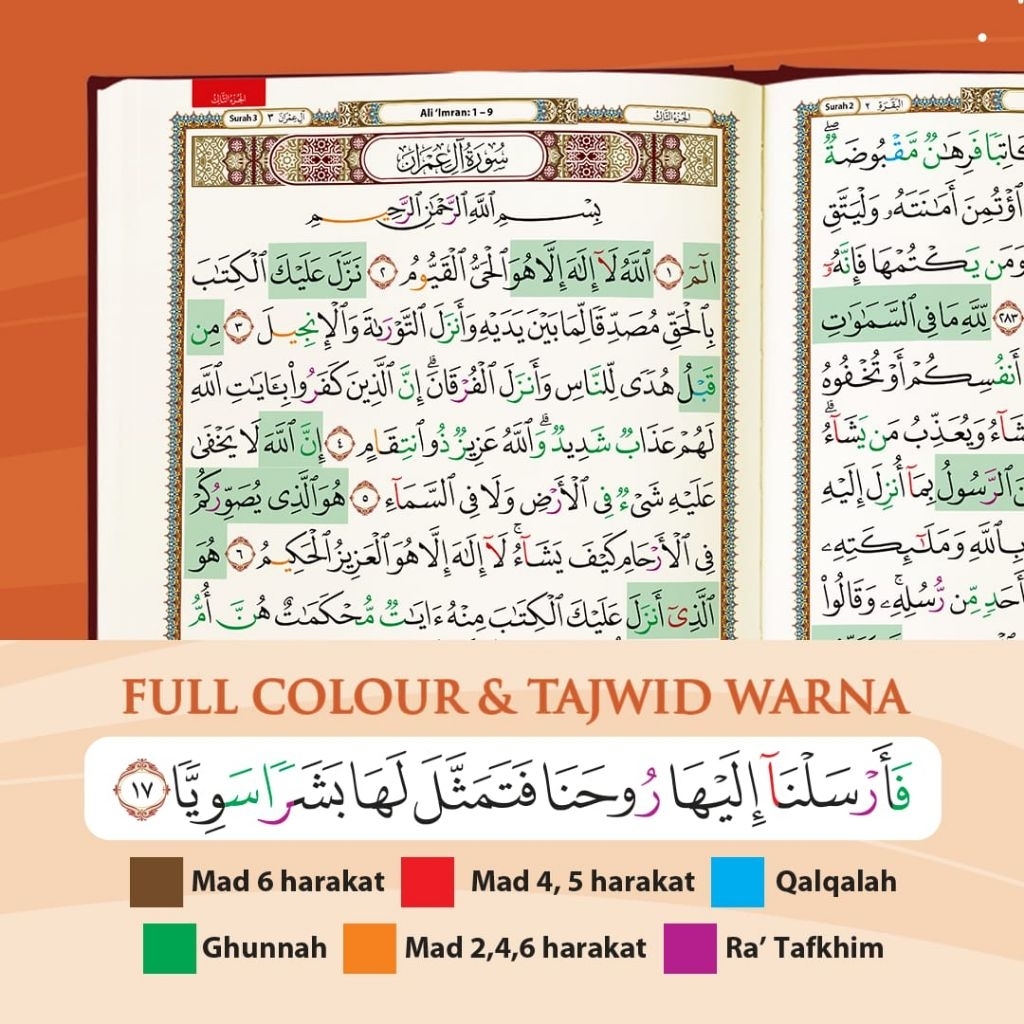 الجزء الثالث
Surah 3 ٣ آل عمران
Ali 'Imran: 1 – 9
الجزء الثالث
سُورَةُ آلِ عِمْرَان
بِسْمِ اللَّهِ الرَّحْمَٰنِ الرَّحِيمِ
الٓمٓ ١ اللَّهُ لَآ إِلَٰهَ إِلَّا هُوَ الْحَيُّ الْقَيُّومُ ٢ نَزَّلَ عَلَيْكَ الْكِتَٰبَ
بِالْحَقِّ مُصَدِّقًا لِّمَا بَيْنَ يَدَيْهِ وَأَنزَلَ التَّوْرَىٰةَ وَالْإِنجِيلَ ٣ مِن
قَبْلُ هُدًى لِّلنَّاسِ وَأَنزَلَ الْفُرْقَانَ ۗ إِنَّ الَّذِينَ كَفَرُوا۟ بِـَٔايَٰتِ اللَّهِ
لَهُمْ عَذَابٌ شَدِيدٌ ۗ وَاللَّهُ عَزِيزٌ ذُو انتِقَامٍ ٤ إِنَّ اللَّهَ لَا يَخْفَىٰ
عَلَيْهِ شَىْءٌ فِى الْأَرْضِ وَلَا فِى السَّمَآءِ ٥ هُوَ الَّذِى يُصَوِّرُكُمْ
فِى الْأَرْحَامِ كَيْفَ يَشَآءُ ۚ لَآ إِلَٰهَ إِلَّا هُوَ الْعَزِيزُ الْحَكِيمُ ٦ هُوَ
الَّذِىٓ أَنزَلَ عَلَيْكَ الْكِتَٰبَ مِنْهُ ءَايَٰتٌ مُّحْكَمَٰتٌ هُنَّ أُمُّ
Surah 2 ٢ البقرة
كَاتِبًا فَرِهَٰنٌ مَّقْبُوضَةٌ ۖ
اؤْتُمِنَ أَمَٰنَتَهُۥ وَلْيَتَّقِ
وَمَن يَكْتُمْهَا فَإِنَّهُۥٓ
٢٨٣ لِّلَّهِ مَا فِى السَّمَٰوَٰتِ
أَنفُسِكُمْ أَوْ تُخْفُوهُ
يَشَآءُ وَيُعَذِّبُ مَن يَشَآءُ ۗ
الرَّسُولُ بِمَآ أُنزِلَ إِلَيْهِ
بِاللَّهِ وَمَلَٰٓئِكَتِهِۦ
أَحَدٍ مِّن رُّسُلِهِۦ ۚ وَقَالُوا۟
FULL COLOUR & TAJWID WARNA
فَأَرْسَلْنَآ إِلَيْهَا رُوحَنَا فَتَمَثَّلَ لَهَا بَشَرًا سَوِيًّا ١٧
Mad 6 harakat
Mad 4, 5 harakat
Qalqalah
Ghunnah
Mad 2,4,6 harakat
Ra' Tafkhim